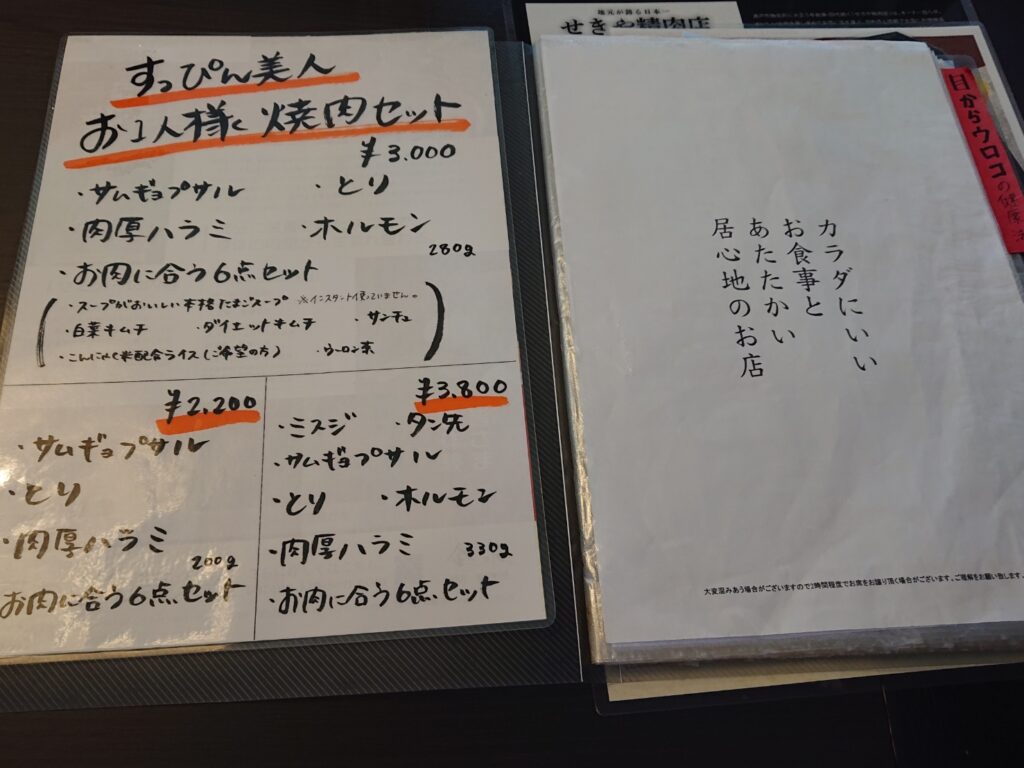 すっぴん美人
お1人様〈焼肉セット
¥3.000
・サムギョプサル ・とり
・肉厚ハラミ ・ホルモン
280g
・お肉に合う6点セット
・スープがおいしい本格たまごスープ ※インスタント使っていません。
・白菜キムチ ・ダイエットキムチ ・サンチュ
・こんにゃく米配合ライス(ご希望の方) ・ウーロン茶
¥2,200
・サムギョプサル
・とり
・肉厚ハラミ
200g
お肉に合う6点セット
¥3.800
・ミスジ ・タン先
・サムギョプサル
・とり ・ホルモン
・肉厚ハラミ 330g
・お肉に合う6点セット
地元が誇る日本一
せきや精肉店
目からウロコの健康
カラダにいい
お食事と
あたたかい
居心地のお店
大変混みあう場合がございますので2時間程度でお席をお譲り頂く場合がございます。ご理解をお願い致します。